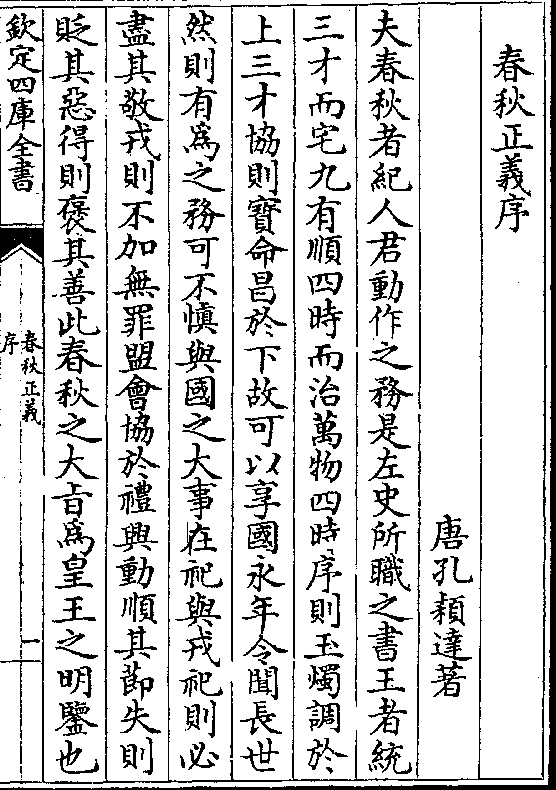 春秋正義序
唐孔穎達著
夫春秋者紀人君動作之務是左史所職之書王者統
三才而宅九有順四時而治萬物四時序則玉燭調於
上三才協則寶命昌於下故可以享國永年令聞長世
然則有爲之務可不慎與國之大事在祀與戎祀則必
盡其敬戎則不加無罪盟會協於禮興動順其節失則
貶其惡得則褒其善此春秋之大旨爲皇王之明鑒也
欽定四庫全書
春秋正義
序
一